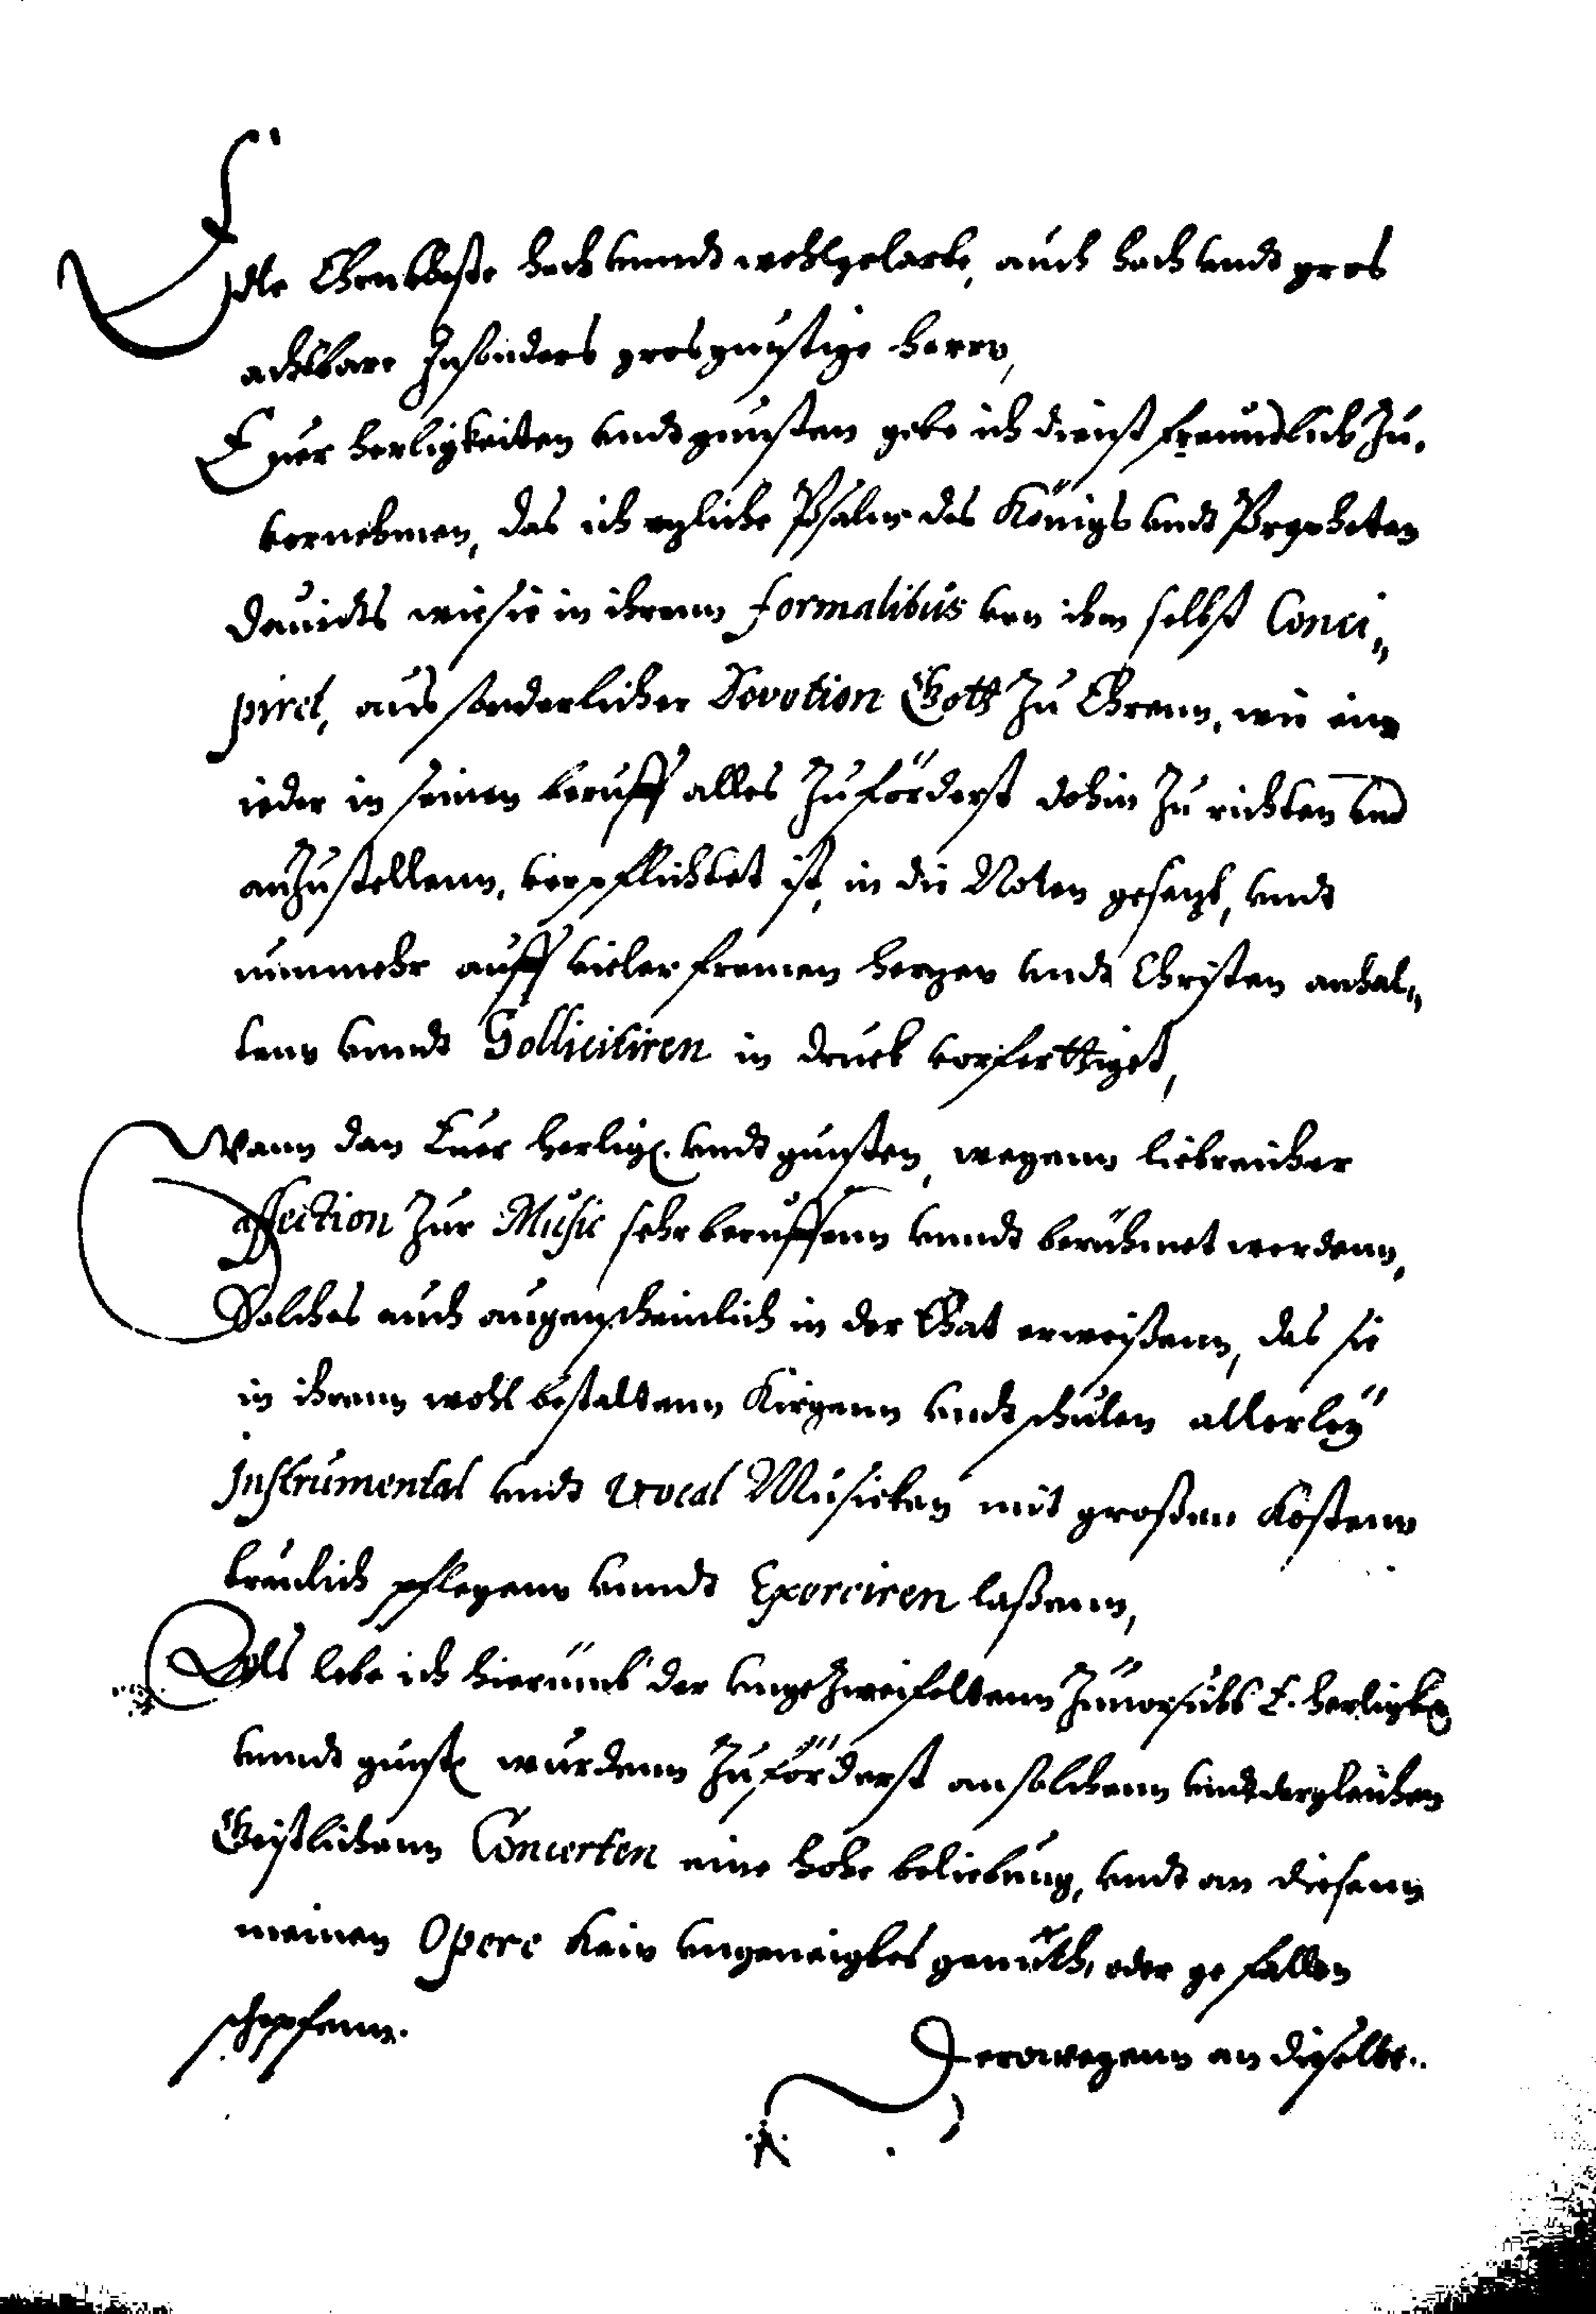 Edle Ehrnveste hoch unndt wohlgelarte, auch hoch undt gros
achtbare Insonders grosgünstige herrn,
Euer herligkeiten undt gunsten gebe ich dienst freundlich Zu„
vornehmen, das ich ezliche Psalm des Königs undt Propheten
Dauidts wie sie in ihrenn formalibus von ihm selbst Conci„
piret, aus sonderlicher Devotion Gott Zu Ehrenn, wie ein
ieder in seinen beruff alles Zuförderst dohin Zu richten und
anZustellenn, verpflichtet ist, in die Noten gesezt, undt
nunmehr auff vieler fromen herzen undt Christen anhal„
tenn unndt Solliciitiren in druck vorferttiget,
Wann dan Euer herligk. undt gunsten, wegenn liebreicher
affection Zur Music sehr beruffenn unndt berühmet werdenn,
Solches auch augenscheinlich in der That erweißenn, das sie
in ihrenn wohl bestaltenn Kirgenn undt schulen allerley
Instrumental undt Vocal Musicken mit großen Kostenn
treulich pflegenn unndt Exerciren laßenn,
Als lebe ich hierumb der ungeZweifeltenn Zuuorsicht E. herligk.
unndt gunst. würdenn Zuförderst an solchenn undt dergleichen
Geistlichenn Concerten eine hohe beliebung, undt an diesenn
meinen Opere kein ungeneigtes gemüth, oder gefallen
schepfenn.
Derowegenn an dieselbe..